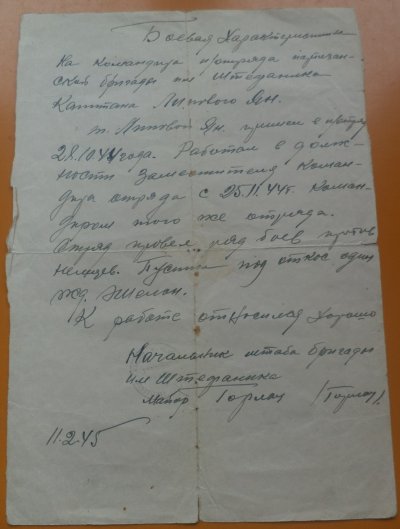 Боевая Характеристика
на командира отряда партизан-
ской бригады им Штефаника
Капитана Липового Ян.
т. Липовой Ян. пришел в отряд
28.10.44 года. Работал в долж-
ности заместителя коман-
дира отряда с 25.11.44г. Коман-
диром того же отряда.
Отряд провел ряд боев против
немцев. Пустил под откос один
жд. эшелон.
К работе относился хорошо
Начальник штаба бригады
им Штефаника
Майор
11.2.45